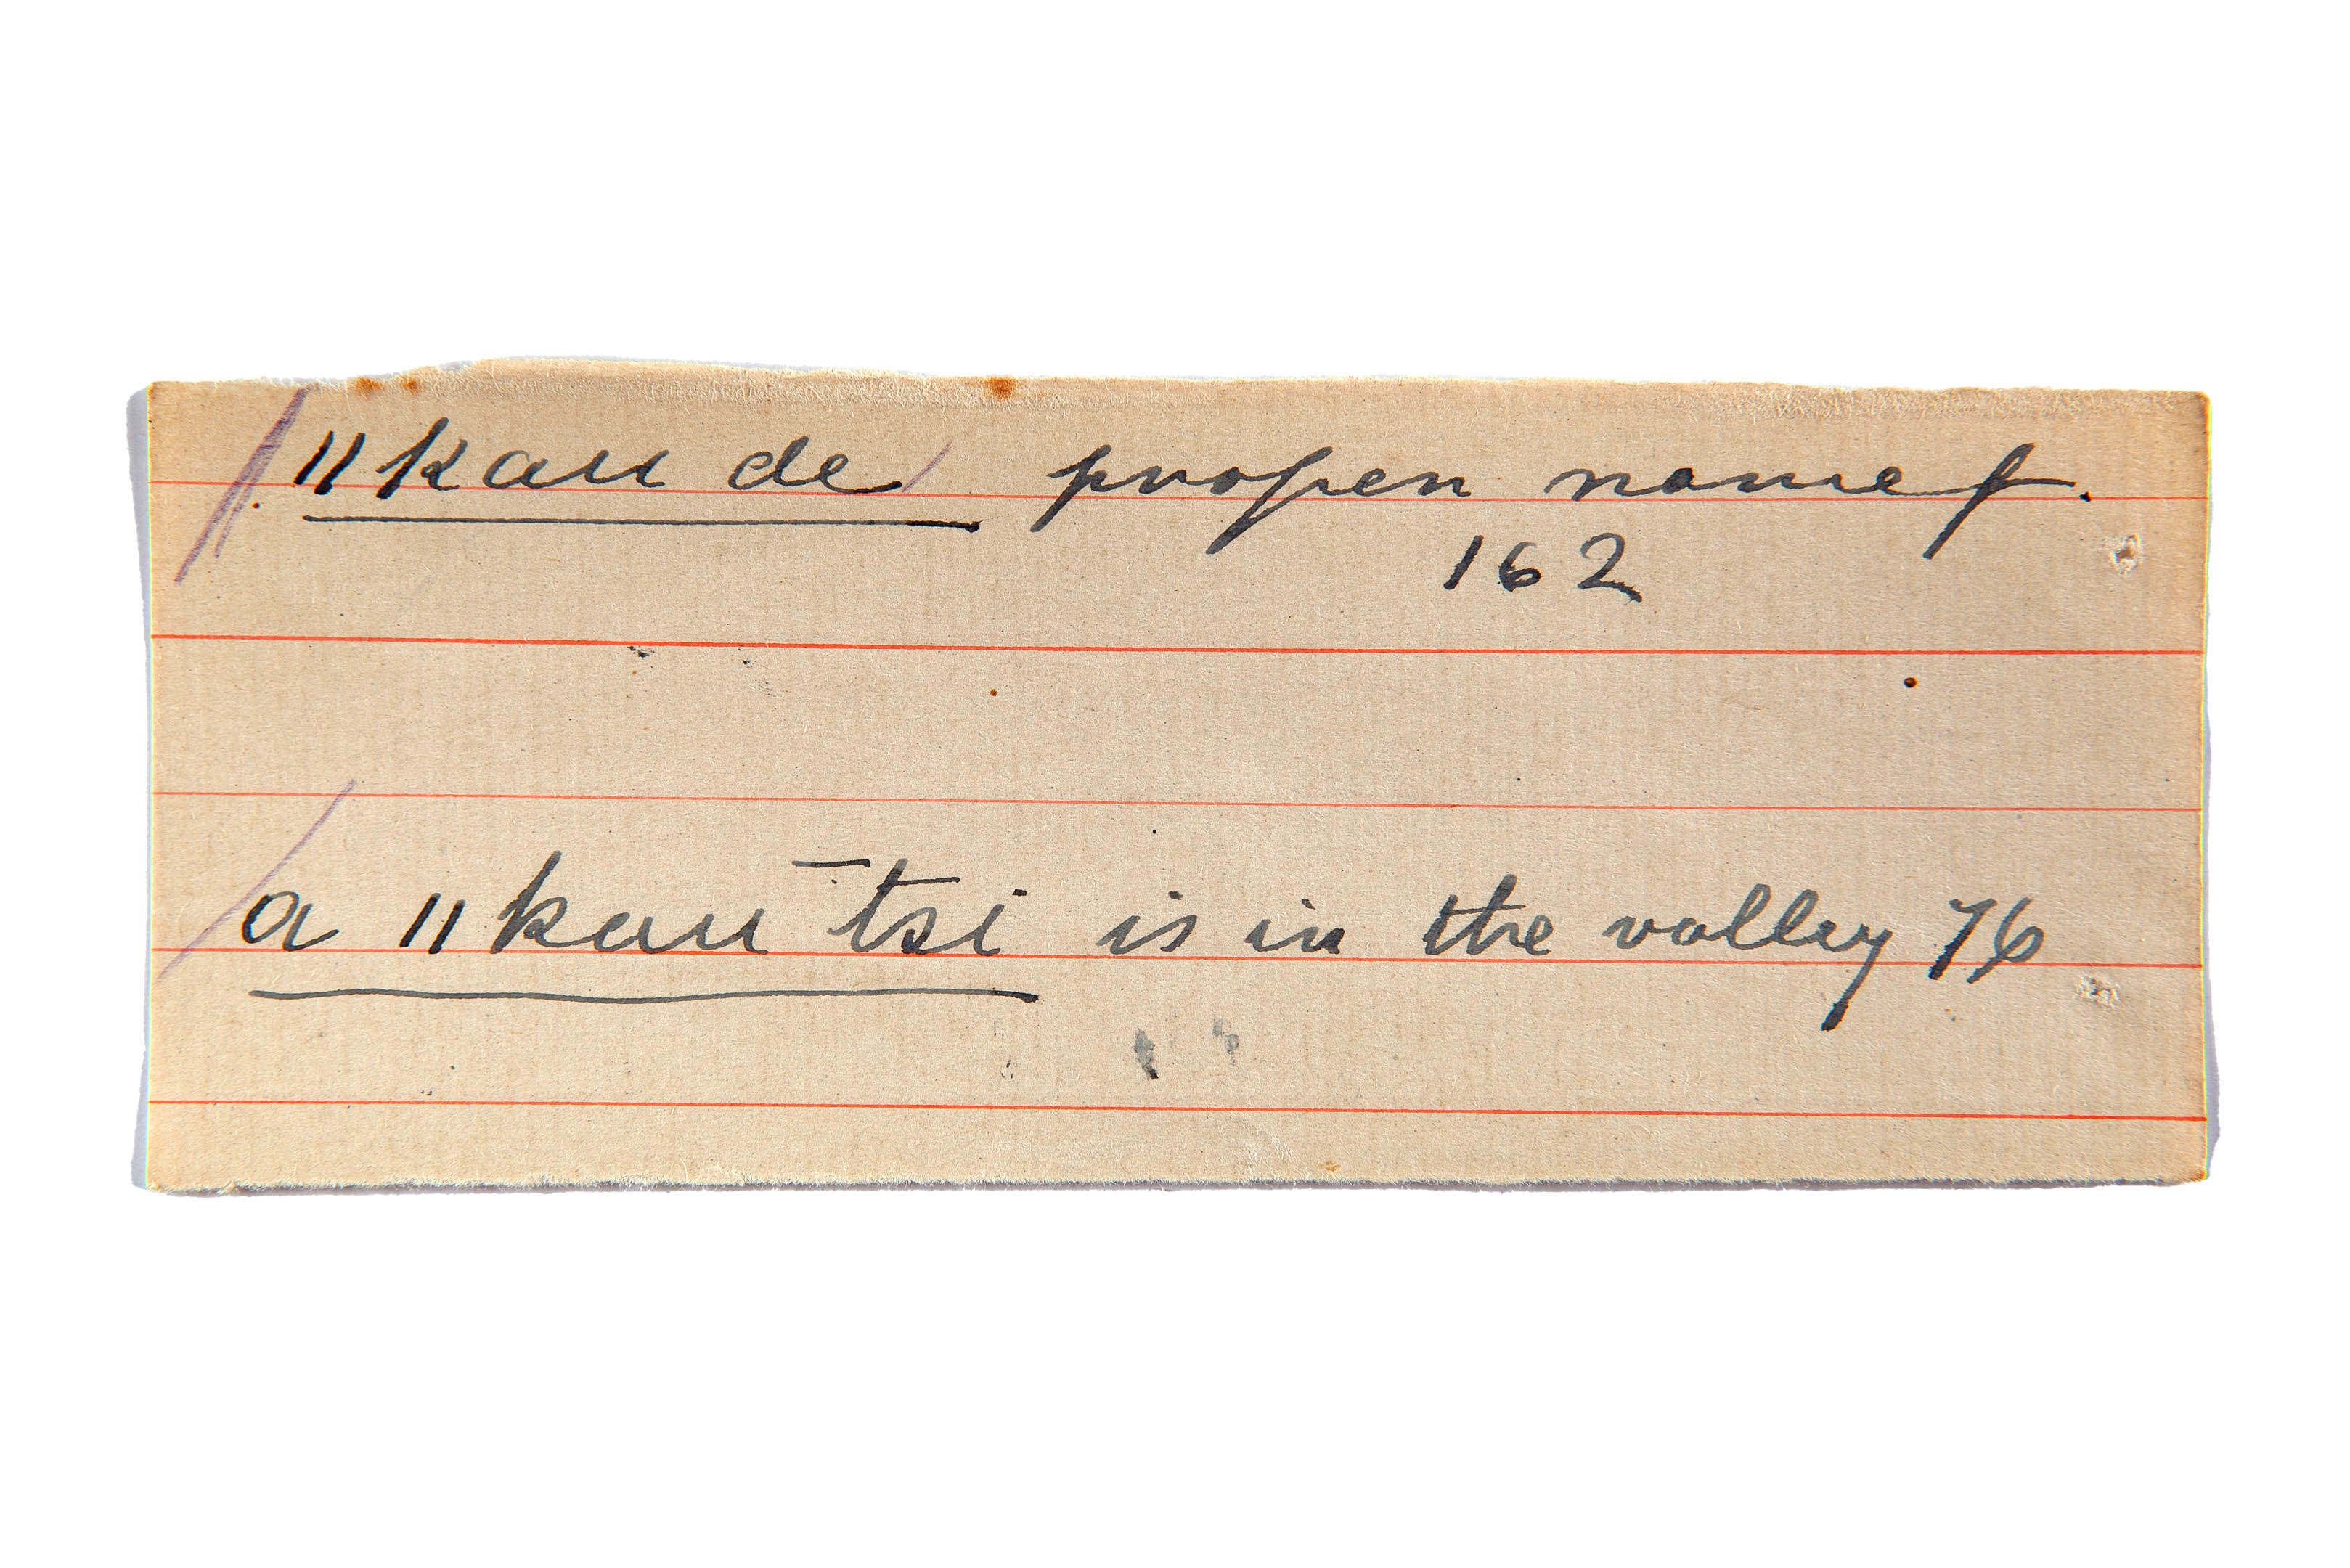 ǁkau de proper name f.
162
a ǁkau ̄tsi is in the valley 76